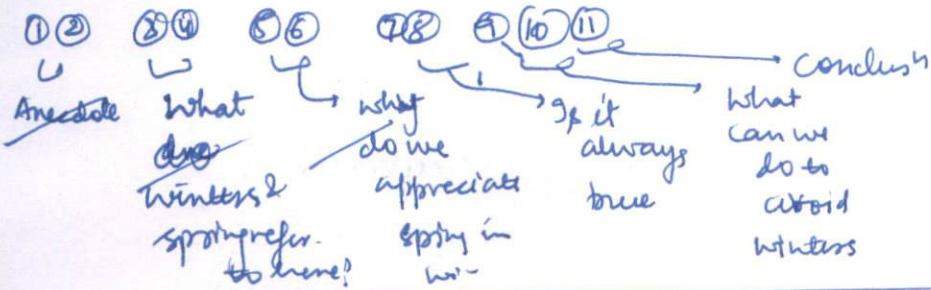 ① ② ③ ④ ⑤ ⑥ ⑦ ⑧ ⑨ ⑩ ⑪
Conclusn
Anecdote
What
winters &
spring refer
to here?
why
do we
appreciate
spring in
wi-
Is it
always
true
What
can we
do to
avoid
winters